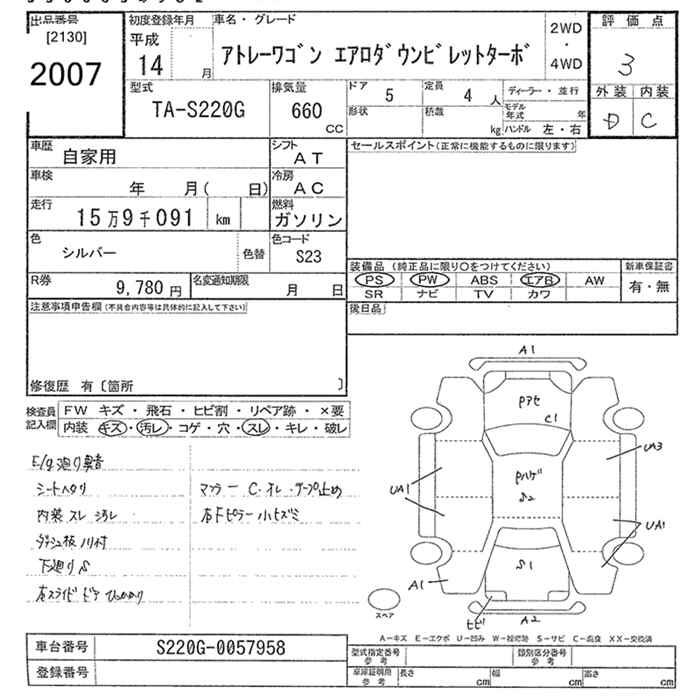 出品番号
[2130]
2007
初度登録年月
平成
14 月
車名・グレード
アトレーワゴン エアロダウンビレットターボ
2WD
・
4WD
評価点
3
外装 内装
D C
型式
TA-S220G
排気量
660
CC
ドア 5
定員 4 人
形状
積載 kg
ディーラー・並行
モデル年式 年
ハンドル 左・右
車歴 自家用
シフト AT
車検 年 月( 日)
冷房 AC
走行 15万9千091 km
燃料 ガソリン
色 シルバー 色替
色コード S23
R券 9,780円
名変通知期限 月 日
セールスポイント(正常に機能するものに限ります)
装備品 (純正品に限り○をつけてください)
新車保証書
PS PW ABS エアB AW
有・無
SR ナビ TV カワ
後日品
注意事項申告欄(不具合内容等は具体的に記入して下さい)
修復歴 有〔箇所 〕
検査員
記入欄
FW キズ・飛石・ヒビ割・リペア跡・×要
内装 キズ・汚レ・コゲ・穴・スレ・キレ・破レ
E/g廻り異音
シートヘタリ
内装 スレ 汚レ
ダッシュ板 ノリ付
下廻りS
右スライドドア ひっかかり
マフラー C・オレ・テープ止め
右Fピラー小ヒズミ
A1
Pアセ
C1
UA3
Pハゲ
S2
UA1
UA1
S1
A1
ヒビ
A2
スペア
A-キズ E-エクボ U-凹み W-補修跡 S-サビ C-腐食 XX-交換済
車台番号 S220G-0057958
登録番号
型式指定番号
参考
類別区分番号
参考
車庫証明用
参考
長さ cm
幅 cm
高さ cm